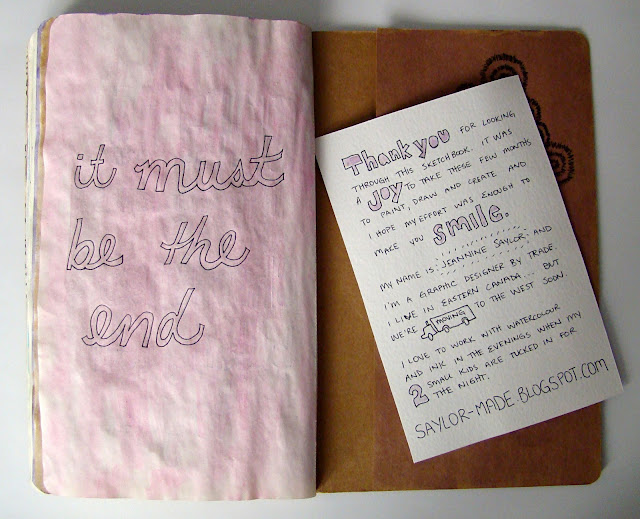 it must
be the
end
Thank you FOR LOOKING
THROUGH THIS SKETCHBOOK. IT WAS
A JOY TO TAKE THESE FEW MONTHS
TO PAINT, DRAW AND CREATE AND
I HOPE MY EFFORT WAS ENOUGH TO
MAKE YOU smile.
MY NAME IS JEANNINE SAYLOR, AND
I'M A GRAPHIC DESIGNER BY TRADE.
I LIVE IN EASTERN CANADA... BUT
WE'RE MOVING TO THE WEST SOON.
I LOVE TO WORK WITH WATERCOLOUR
AND INK IN THE EVENINGS WHEN MY
2 SMALL KIDS ARE TUCKED IN FOR
THE NIGHT.
SAYLOR-MADE.BLOGSPOT.COM